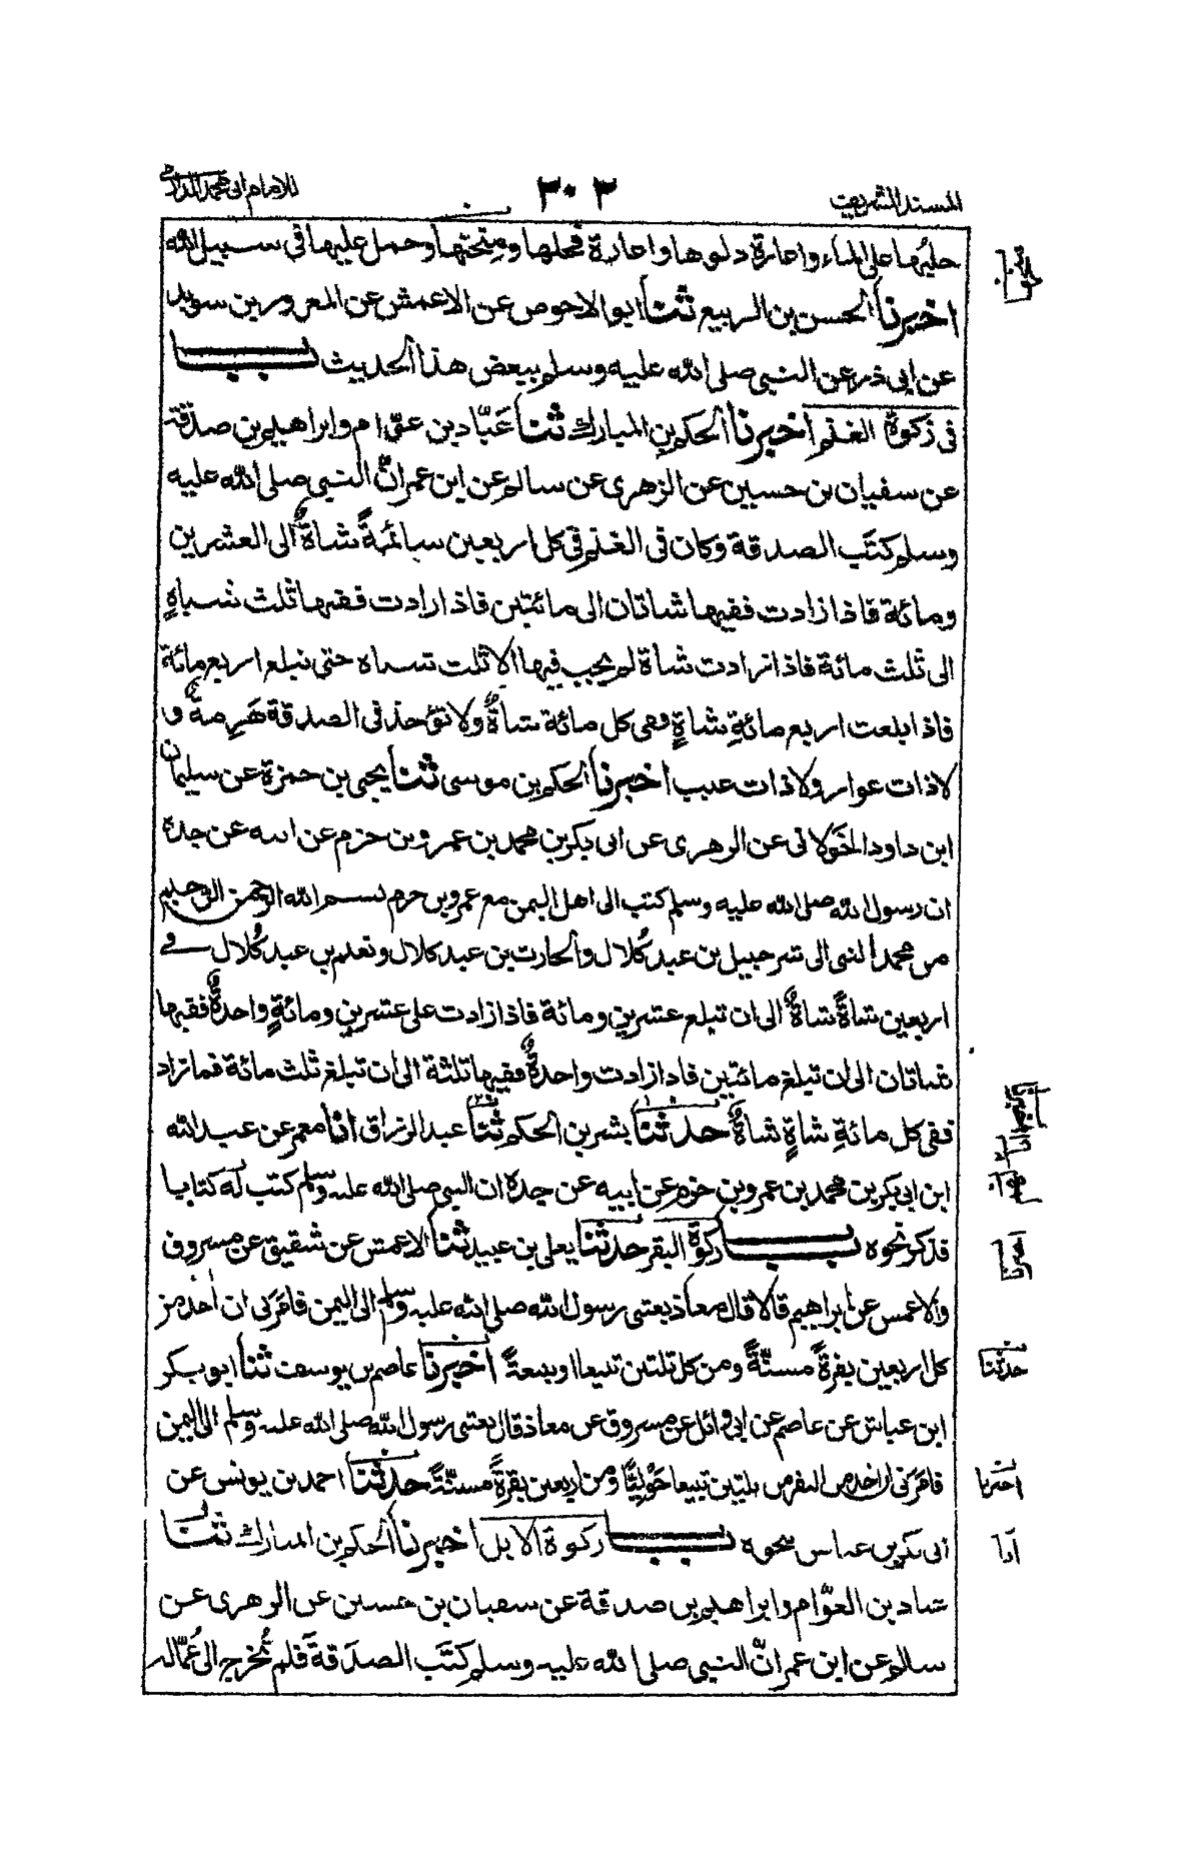 المسند الشريف
٣٠٣
للامام ابی محمد الدارمی
حلبُها علی الماء واعارة دلوها واعارة فحلها ومنحتها وحمل علیها فی سبیل الله
اخبرنا الحسن بن الربیع ثنا ابو الاحوص عن الاعمش عن المعرور بن سوید
عن ابی ذر عن النبی صلی الله علیه وسلم ببعض هذا الحدیث باب
فی زکوة الغنم اخبرنا الحکم بن المبارك ثنا عَبّاد بن عوّام وابراهیم بن صدقة
عن سفیان بن حسین عن الزهری عن سالم عن ابن عمر انّ النبی صلی الله علیه
وسلم کتَب الصدقة وکان فی الغنم فی کل اربعین سائمةً شاةٌ الی العشرین
ومائة فاذا زادت ففیها شاتان الی مائتین فاذا زادت ففیها ثلث شیاهٍ
الی ثلث مائة فاذا زادت شاة لم یجب فیها الا ثلث شیاه حتی تبلغ اربع مائة
فاذا بلغت اربع مائةِ شاةٍ ففی کل مائة شاةٌ ولا تؤخذ فی الصدقة هَرِمةٌ و
لا ذات عوار ولا ذات عیب اخبرنا الحکم بن موسی ثنا یحیی بن حمزة عن سلیمان
ابن داود الخَولانی عن الزهری عن ابی بکر بن محمد بن عمرو بن حزم عن ابیه عن جده
ان رسول الله صلی الله علیه وسلم کتب الی اهل الیمن مع عمرو بن حزم بسم الله الرحمن الرحیم
من محمد النبی الی شرحبیل بن عبد کُلال والحارث بن عبد کلال ونعیم بن عبد کُلال فی
اربعین شاةً شاةٌ الی ان تبلغ عشرین ومائة فاذا زادت علی عشرین ومائةٍ واحدةٌ ففیها
شاتان الی ان تبلغ مائتین فاذا زادت واحدةٌ ففیها ثلثة الی ان تبلغ ثلث مائة فما زاد
ففی کل مائةِ شاةٍ شاةٌ حدثنا بشر بن الحکم ثنا عبد الرزاق انا معمر عن عبد الله
ابن ابی بکر بن محمد بن عمرو بن حزم عن ابیه عن جده ان النبی صلی الله علیه وسلم کتب له کتابا
فذکر نحوه باب زکوة البقر حدثنا یعلی بن عبید ثنا الاعمش عن شقیق عن مسروق
والاعمش عن ابراهیم قالا قال معاذ بعثنی رسول الله صلی الله علیه وسلم الی الیمن فامَرَنی ان اٰخذ من
کل اربعین بقرةً مسنّةً ومن کل ثلثین تبیعا او تبیعةً اخبرنا عاصم بن یوسف ثنا ابو بکر
ابن عیاش عن عاصم عن ابی وائل عن مسروق عن معاذ قال بعثنی رسول الله صلی الله علیه وسلم الی الیمن
فامَرَنی ان اٰخذ من البقر من ثلثین تبیعا حَولیّا ومن اربعین بقرةً مسنّةً حدثنا احمد بن یونس عن
ابی بکر بن عیاش بنحوه باب زکوة الابل اخبرنا الحکم بن المبارك ثنا
عباد بن العوّام وابراهیم بن صدقة عن سفیان بن حسین عن الزهری عن
سالم عن ابن عمر انّ النبی صلی الله علیه وسلم کتَب الصدَقةَ فلم تُخرج الی عُمّاله
اخبرنا
حدثنا
اخبرنا
انا